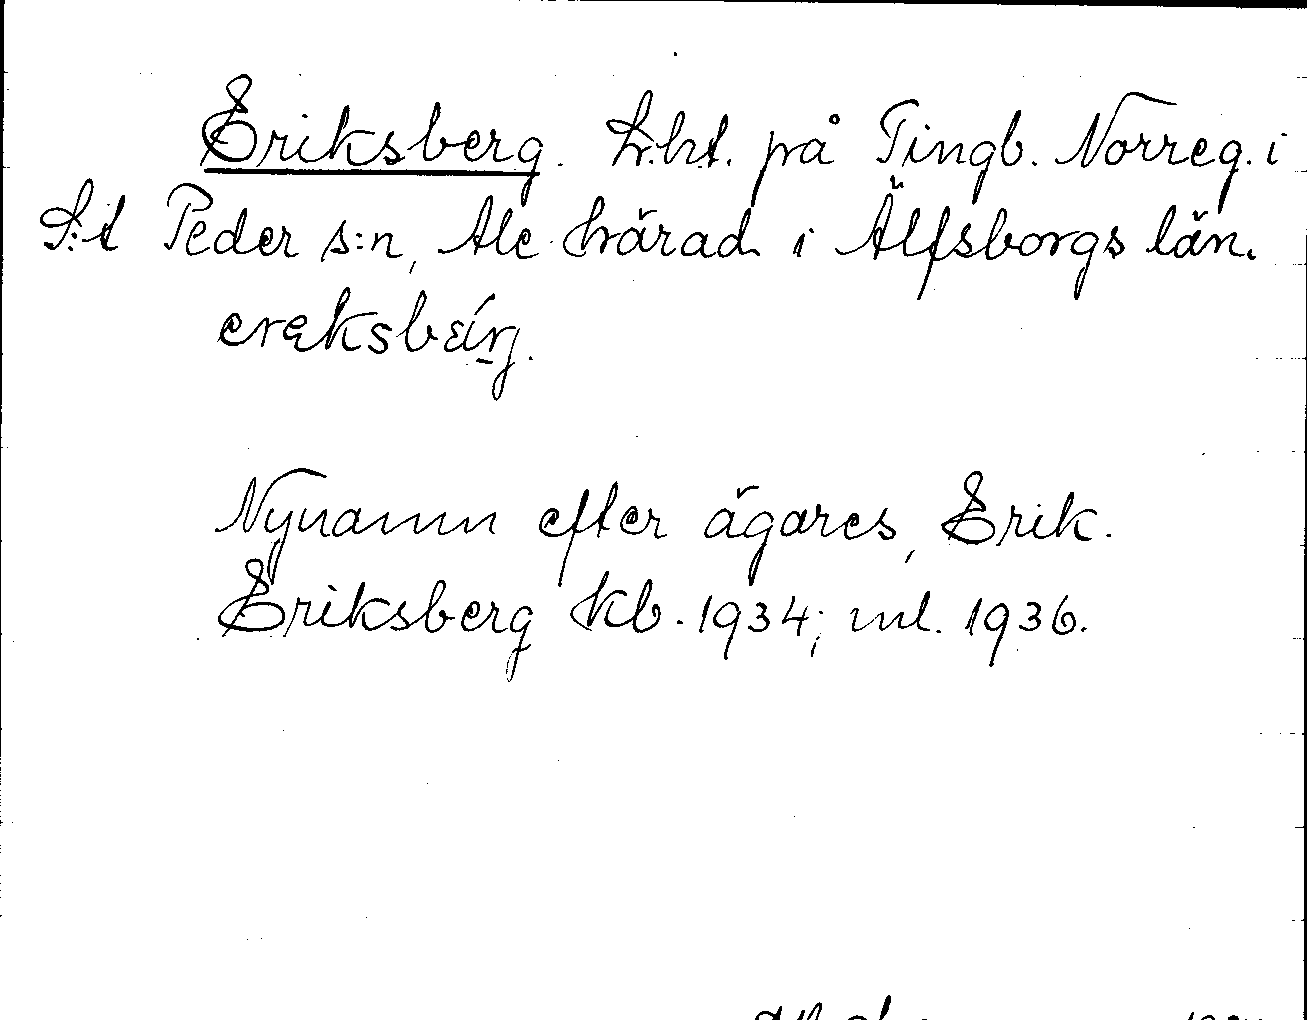 Eriksberg. Lht. på Tingb. Norreg. i
S:t Peder s:n, Ale härad i Älfsborgs län.
Nynamn efter ägares, Erik.
Eriksberg kb. 1934; ml. 1936.